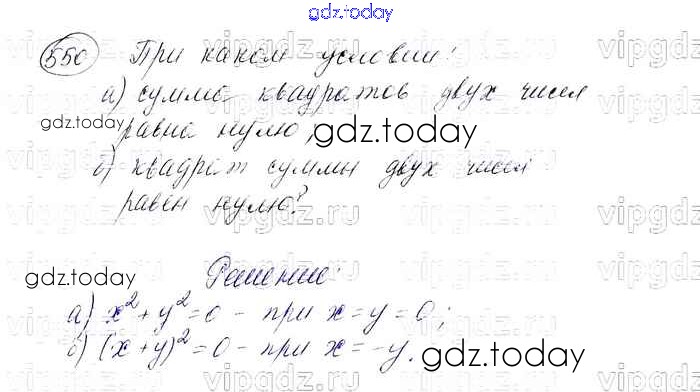 gdz.today
550 При каком условии:
а) сумма квадратов двух чисел
gdz.today
равна нулю,
gdz.today
б) квадрат суммы двух чисел
равен нулю?
vipgdz.ru
gdz.today
Решение:
а) x²+y²=0 – при x=y=0;
б) (x+y)²=0 – при x=-y.
gdz.today